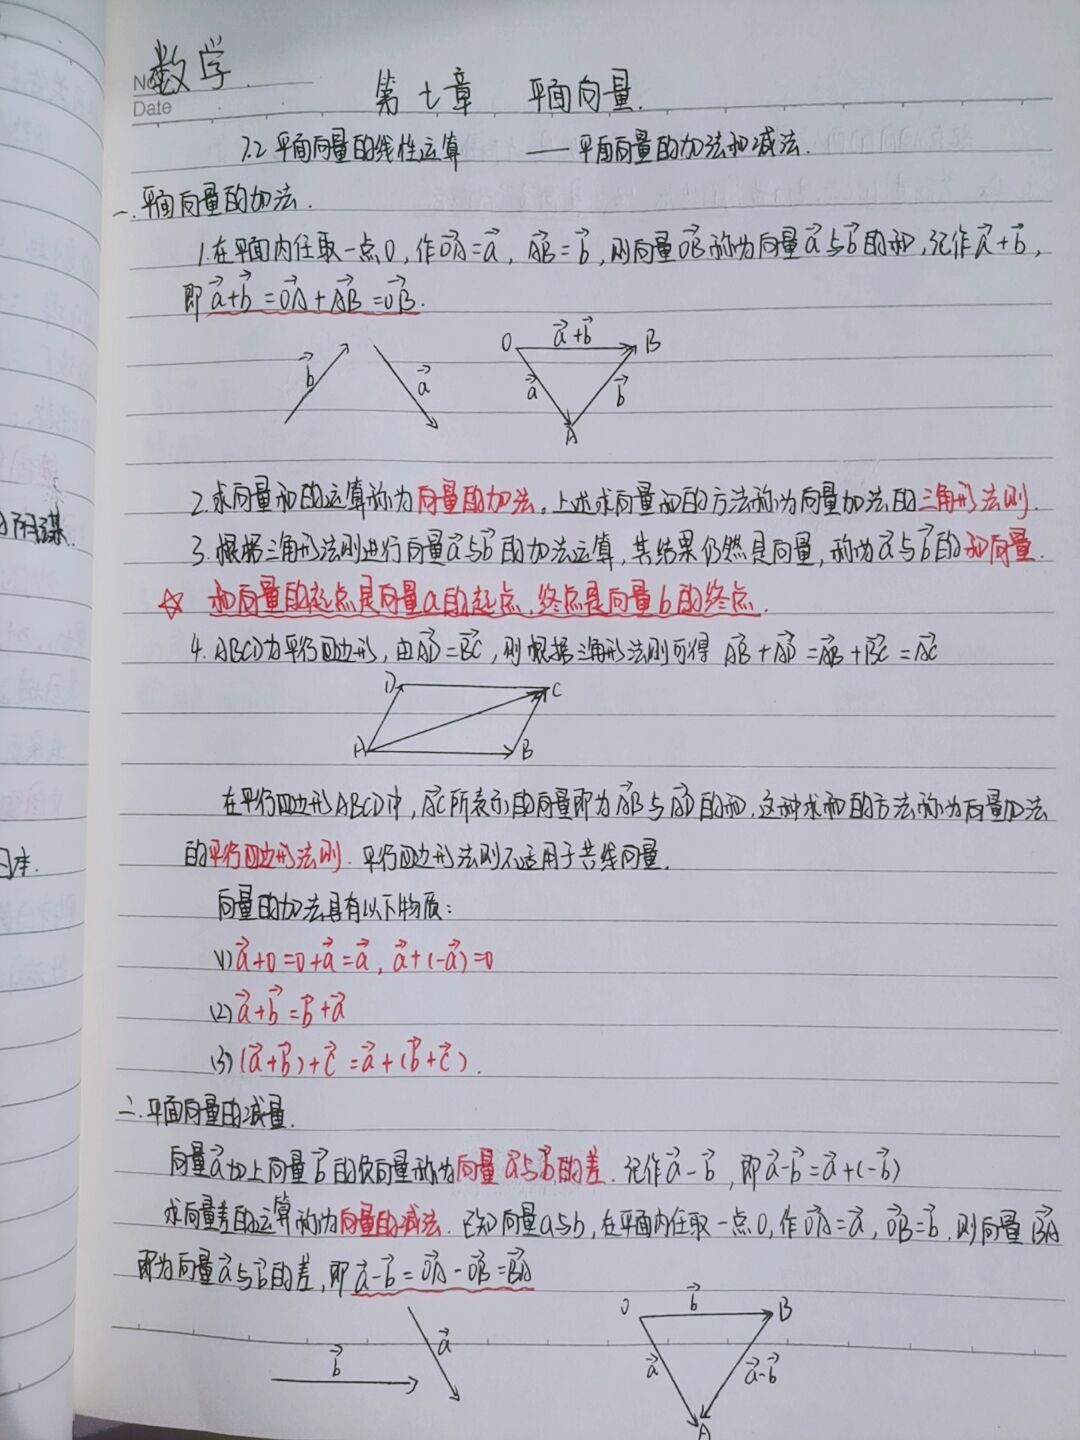 数学
No.
Date
第七章 平面向量.
7.2 平面向量的线性运算 —— 平面向量的加法和减法.
一.平面向量的加法.
1.在平面内任取一点O,作OA⃗=a⃗, AB⃗=b⃗,则向量OB⃗称为向量a⃗与b⃗的和,记作a⃗+b⃗,
即a⃗+b⃗=OA⃗+AB⃗=OB⃗.
b⃗ a⃗ O a⃗+b⃗ B
a⃗ b⃗
A
2.求向量和的运算称为向量的加法,上述求向量和的方法称为向量加法的三角形法则.
3.根据三角形法则进行向量a⃗与b⃗的加法运算,其结果仍然是向量,称为a⃗与b⃗的和向量.
☆ 和向量的起点是向量a的起点,终点是向量b的终点.
4.ABCD为平行四边形,由AD⃗=BC⃗,则根据三角形法则可得 AB⃗+AD⃗=AB⃗+BC⃗=AC⃗
D C
A B
在平行四边形ABCD中,AC⃗所表示的向量即为AB⃗与AD⃗的和,这种求和的方法称为向量加法
的平行四边形法则.平行四边形法则不适用于共线向量.
向量的加法具有以下物质:
(1)a⃗+0=0+a⃗=a⃗, a⃗+(-a⃗)=0
(2)a⃗+b⃗=b⃗+a⃗
(3)(a⃗+b⃗)+c⃗=a⃗+(b⃗+c⃗).
二.平面向量的减量.
向量a⃗加上向量b⃗的负向量称为向量a⃗与b⃗的差.记作a⃗-b⃗,即a⃗-b⃗=a⃗+(-b⃗)
求向量差的运算称为向量的减法.已知向量a与b,在平面内任取一点O,作OA⃗=a⃗,OB⃗=b⃗.则向量BA⃗
即为向量a⃗与b⃗的差,即a⃗-b⃗=OA⃗-OB⃗=BA⃗
b⃗ a⃗ O b⃗ B
a⃗ a⃗-b⃗
A